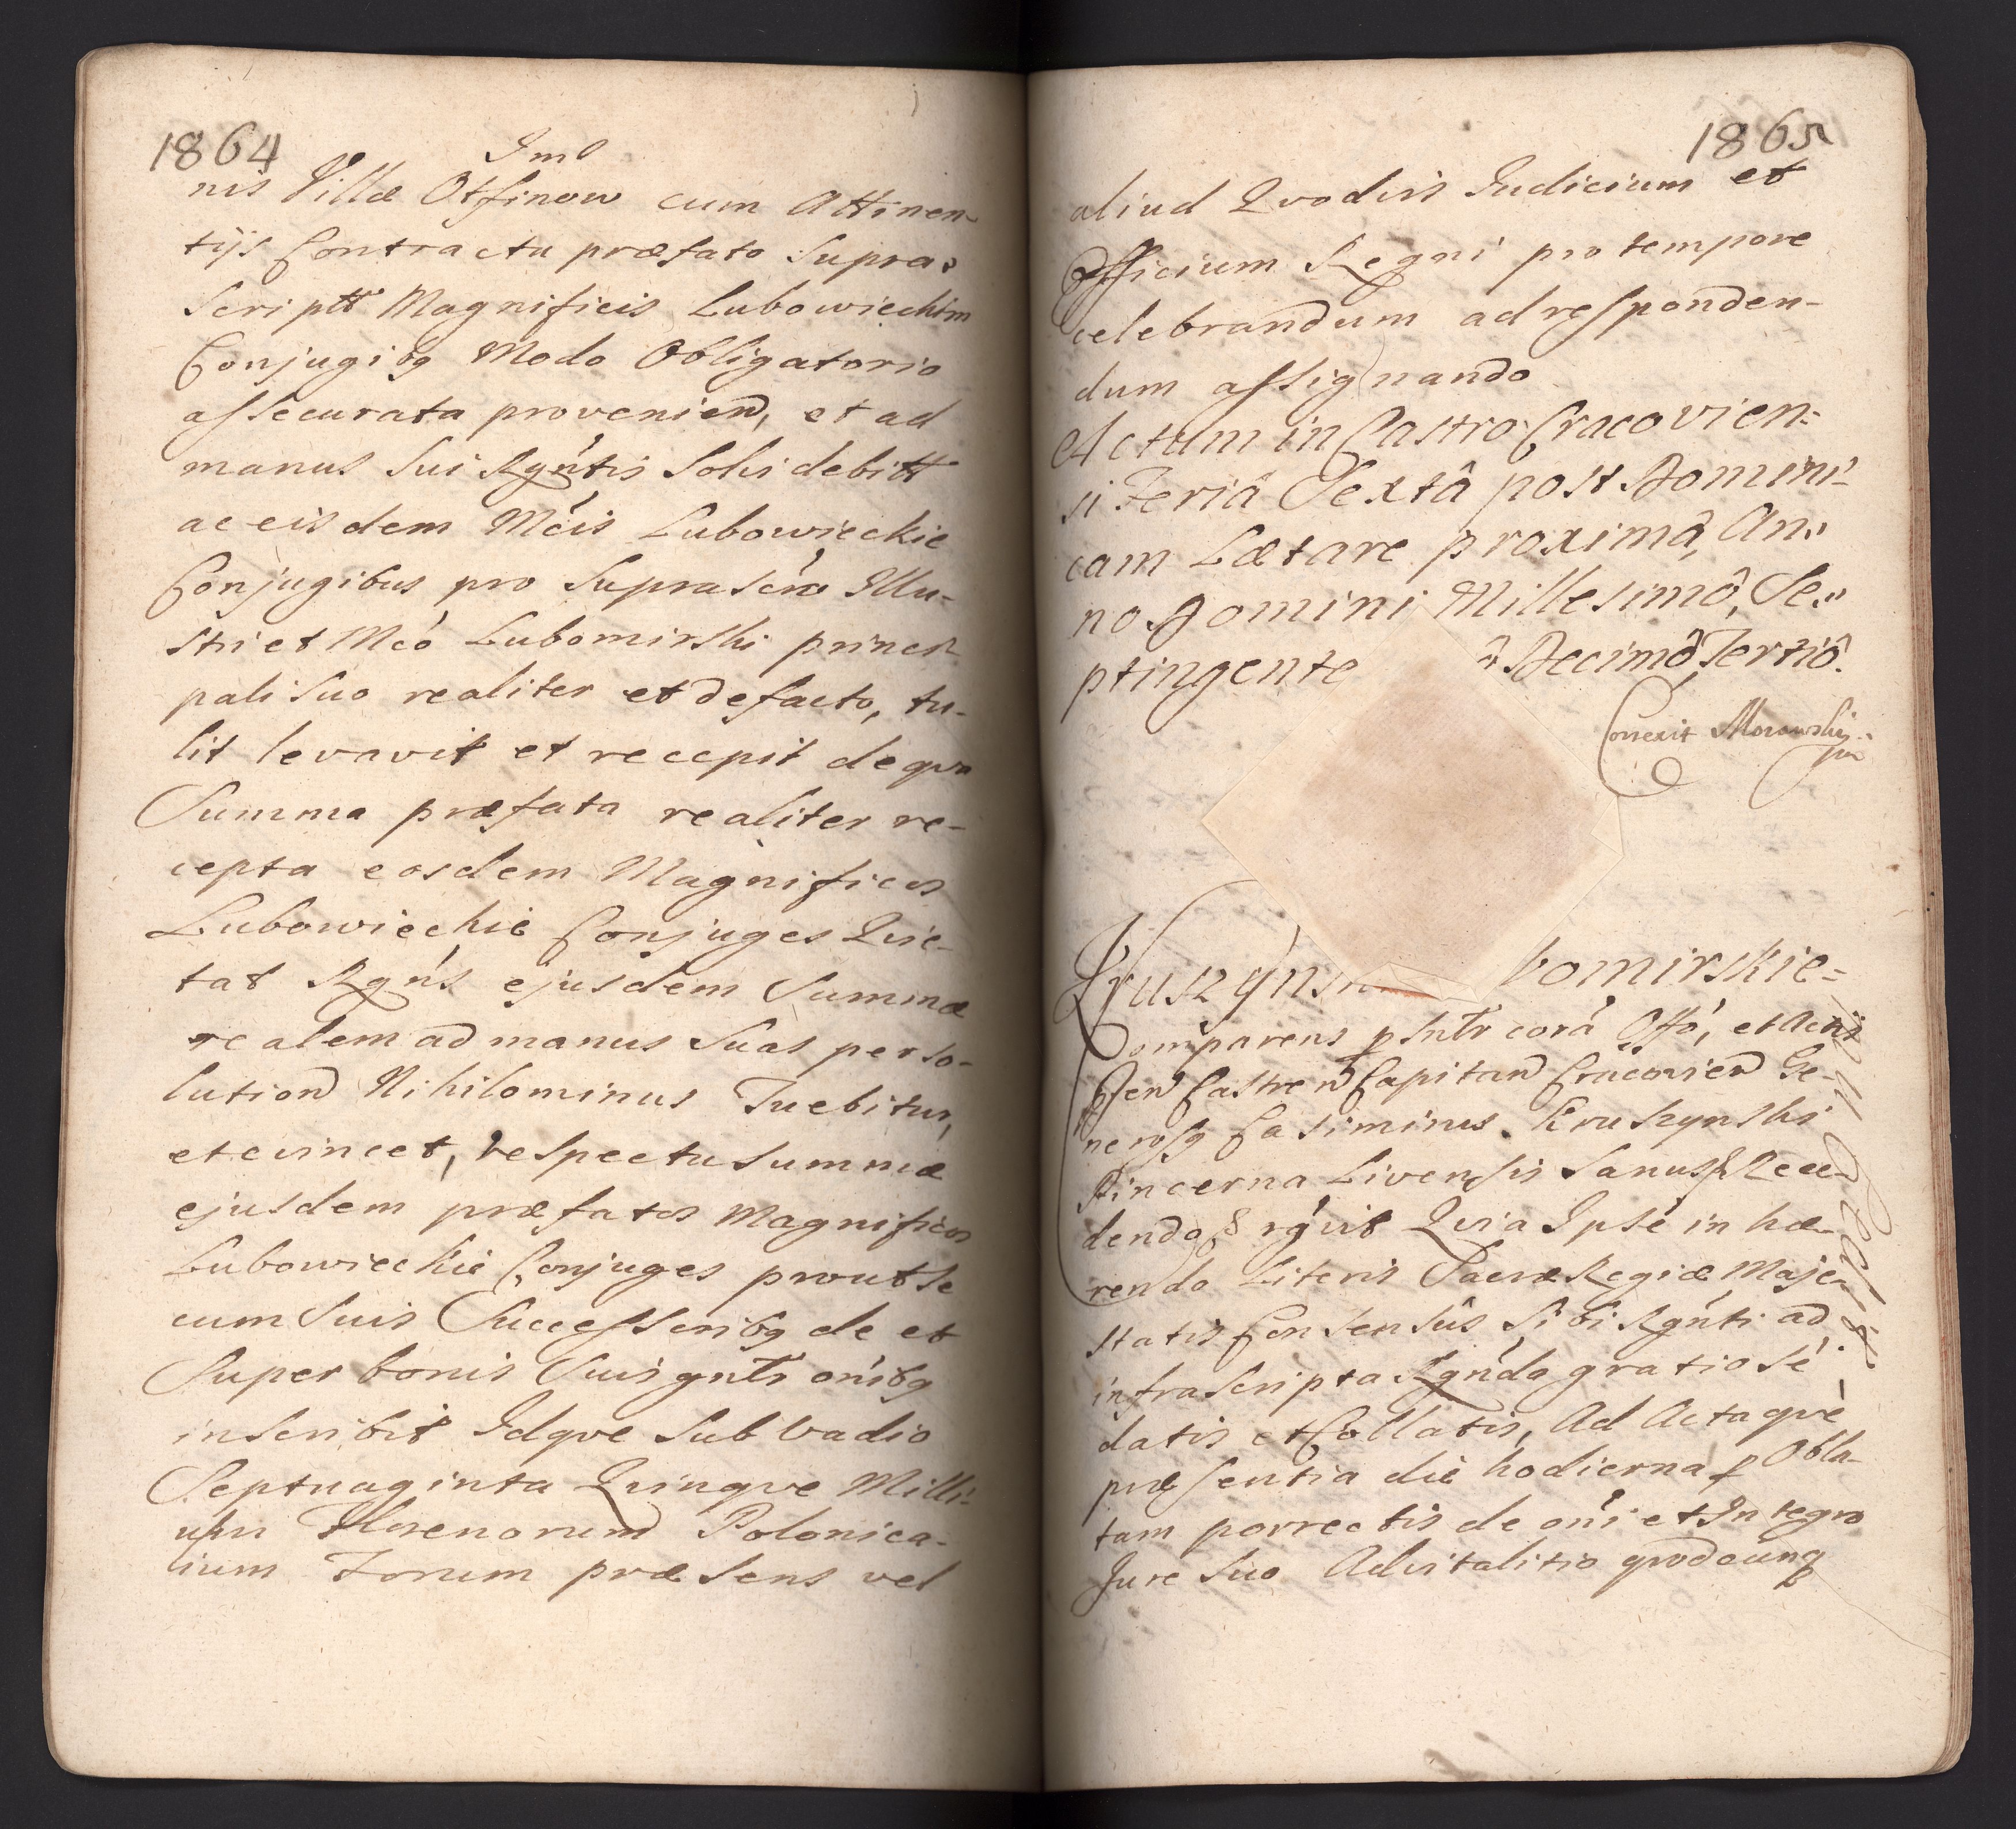 1864
Imo
nis Villæ Otfinow cum Attinen-
tijs Contractu præfato Supra-
scriptt Magnificis Lubowieckim
Conjugibq Modo Obligatorio
assecurata provenien, et ad
manus Sui Rgñtis Solvi debitt
ac eisdem Mcis Lubowieckie
Conjugibus pro Suprascro Illu-
stri et Mco Lubomirski princi-
pali Suo realiter et defacto, tu-
lit levavit et recepit de qva
Summa præfata realiter re-
cepta eosdem Magnificos
Lubowieckie Conjuges Qvie-
tat Rgñs ejusdem Summæ
realem ad manus Suas perso-
lution Nihilominus Tuebitur,
et evincet, respectu Summæ
ejusdem præfatos Magnificos
Lubowieckie Conjuges prout se
cum Suis Successoribq de et
Super bonis Suis gnlr oñibq
inscribit Idqve Sub Vadio
Septuaginta Qvinqve Milli-
um Florenorum Polonica-
lium Forum præsens vel
1865
aliud Qvodvis Iudicium et
Officium Regni pro tempore
celebrandum ad responden-
dum assignando
Actum in Castro Cracovien-
si Feriâ Sextâ post Domini-
cam Lætare proximâ, An-
no Domini Millesimô, Se-
ptingente ô Decimô, Tertiô.
Correxit Morawski
Kruszynsk bomirskie-
Comparens psnlr corá Offó, et Actis
Pten Castren Capitan Cracovien Ge-
nerosq Casimirus Kruszynski
Pincerna Livensis Sanus & Rece-
dendo & rgvit Qvia Ipse in hæ-
rendo Literis Sacræ Regiæ Maje-
statis Consensûs Sibi Rgñti ad
infrascripta Rgñda gratiosè
datis et Collatis, Ad Actaqve
præsentia die hodierna p Obla-
tam porrectis de oñi et Integro
Jure Suo Advitalitio qvodcunq